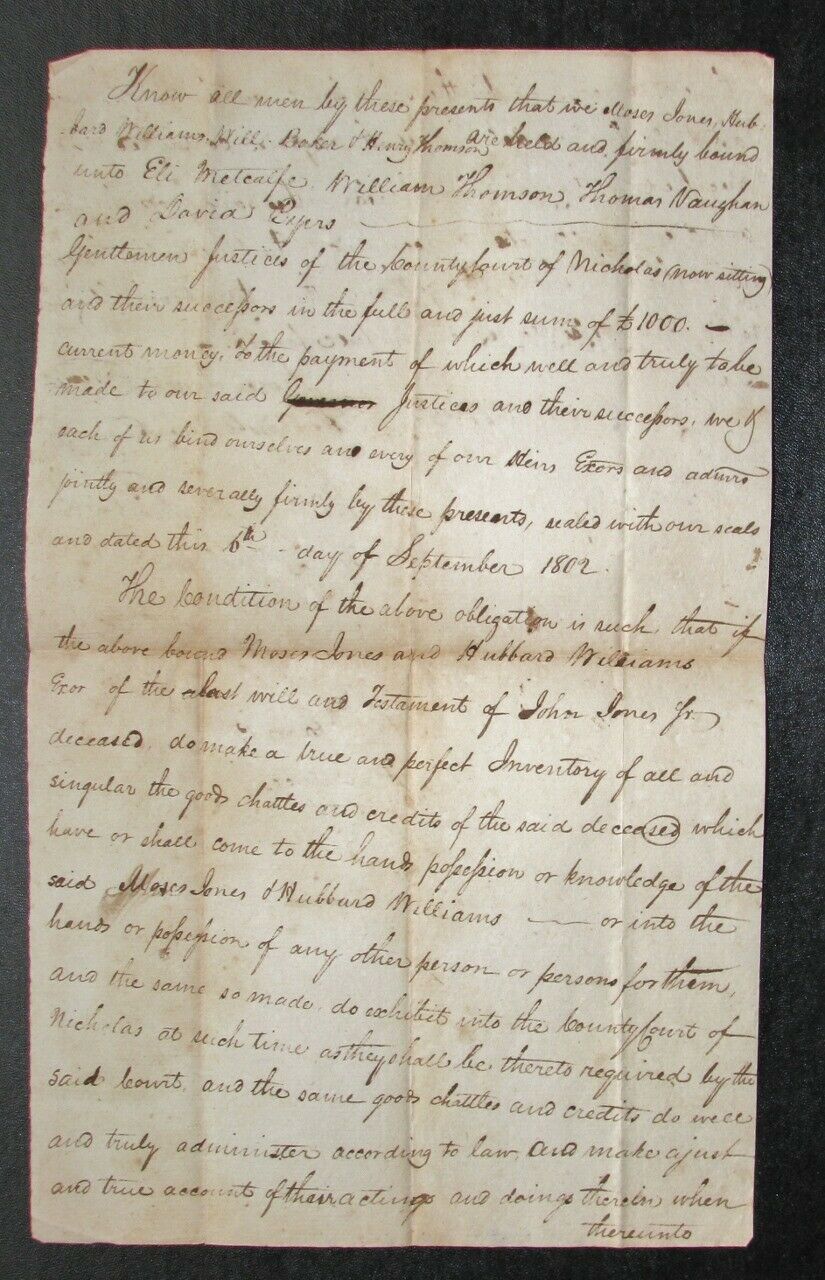 Know all men by these presents that we Moses Jones, Hub-
bard Williams, Will. Baker & Henry Thomson are held and firmly bound
unto Eli Metcalfe, William Thomson, Thomas Vaughan
and David
Gentlemen Justices of the County Court of Nicholas (now sitting)
and their successors in the full and just sum of £1000. —
current money. To the payment of which well and truly to be
made to our said Governor Justices and their successors, we &
each of us bind ourselves and every of our Heirs Exors and admrs
jointly and severally firmly by these presents, sealed with our seals
and dated this 6th day of September 1802.
The Condition of the above obligation is such, that if
the above bound Moses Jones and Hubbard Williams
Exor of the last will and Testament of John Jones Jr.
deceased, do make a true and perfect Inventory of all and
singular the goods chattles and credits of the said deceased which
have or shall come to the hands possession or knowledge of the
said Moses Jones & Hubbard Williams — or into the
hands or possession of any other person or persons for them,
and the same so made, do exhibit into the County Court of
Nicholas at such time as they shall be thereto required by the
said Court, and the same goods chattles and credits do well
and truly administer according to law, and make a just
and true account of their actings and doings therein when
thereunto